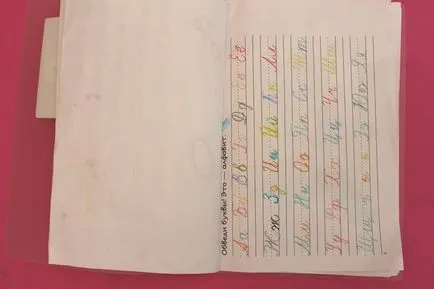 Обведи буквы! Это — алфавит.
Аа Бб Вв Гг Дд Ее Ёё
Жж Зз Ии Йй Кк Лл
Мм Нн Оо Пп Сс Тт
Уу Фф Хх Цц Чч Шш
Щщ ъ ы ь Ээ Юю Яя